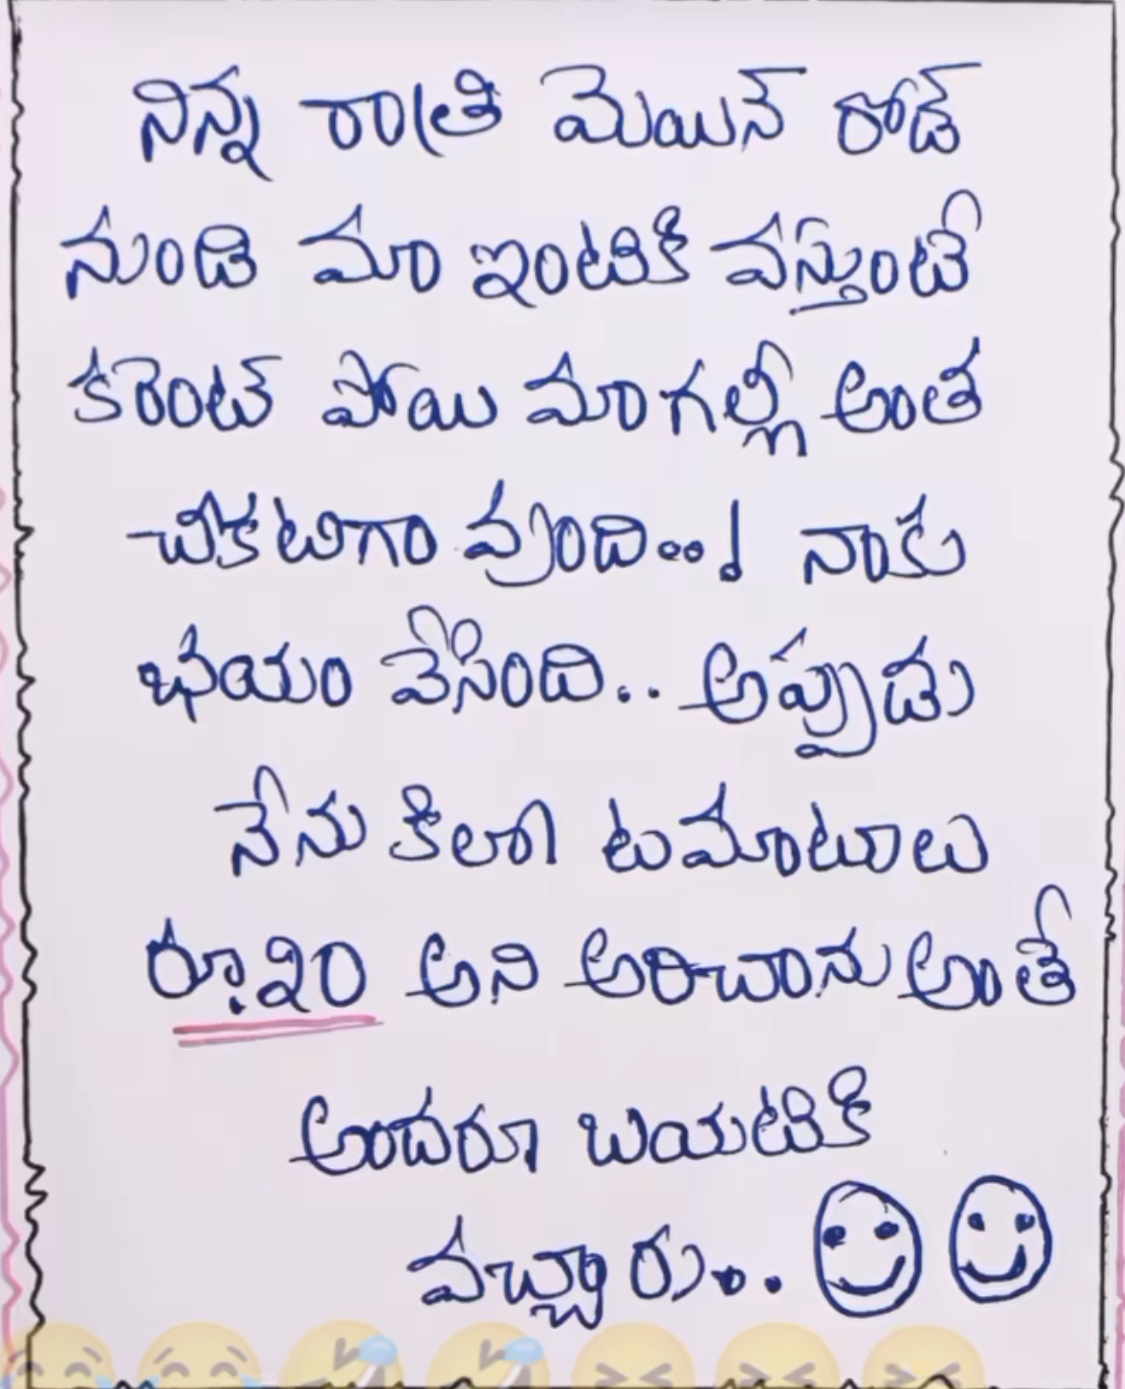 నిన్న రాత్రి మెయిన్ రోడ్
నుండి మా ఇంటికి వస్తుంటే
కరెంట్ పోయి మా గల్లీ అంత
చీకటిగా వుంది..! నాకు
భయం వేసింది.. అప్పుడు
నేను కిలో టమాటూలు
రూ.20 అని అరిచాను అంతే
అందరూ బయటికి
వచ్చారు...